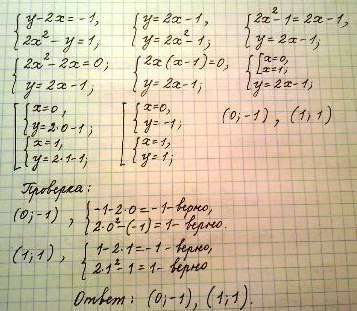 {y-2x=-1, {y=2x-1, {2x²-1=2x-1,
{2x²-y=1; {y=2x²-1; {y=2x-1;
{2x²-2x=0; {2x(x-1)=0; {[x=0, [x=1;
{y=2x-1; {y=2x-1; {y=2x-1;
[{x=0, [{x=0, (0;-1), (1;1)
{y=2·0-1; {y=-1;
{x=1, {x=1,
{y=2·1-1; {y=1;
Проверка:
(0;-1), {-1-2·0=-1-верно,
{2·0²-(-1)=1-верно.
(1;1), {1-2·1=-1-верно,
{2·1²-1=1-верно
Ответ: (0;-1), (1;1).